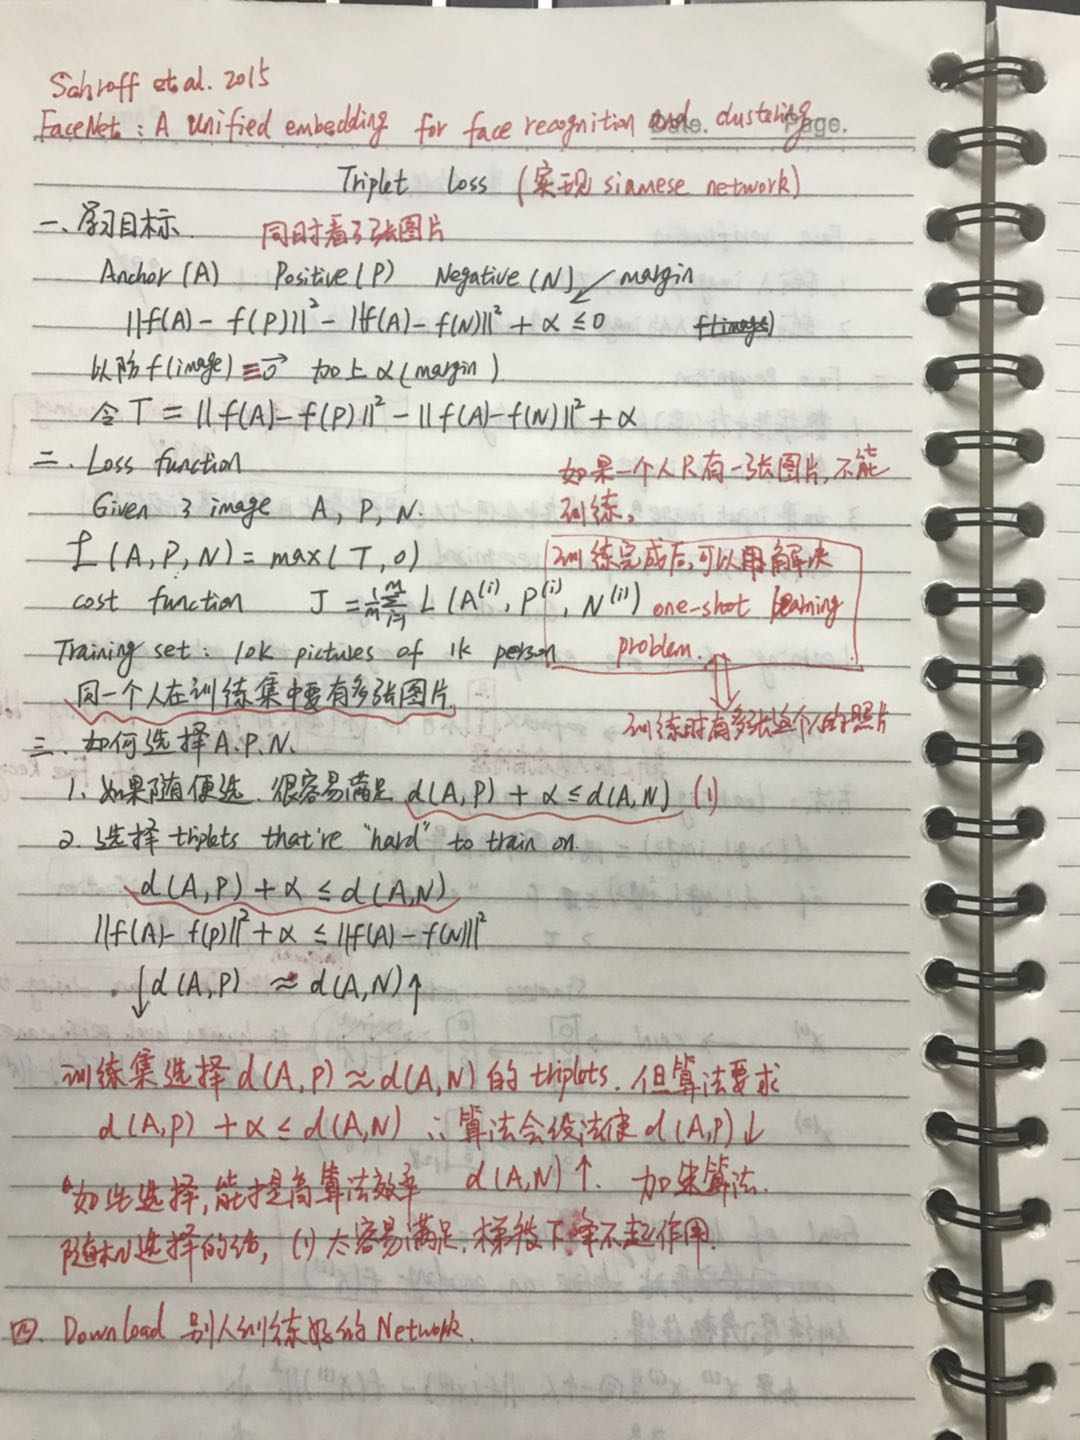 Schroff et al. 2015
FaceNet : A unified embedding for face recognition and clustering
Date. Page.
Triplet Loss (实现 siamese network)
一、学习目标 同时看3张图片
Anchor (A) Positive (P) Negative (N) margin
||f(A) - f(P)||² - ||f(A) - f(N)||² + α ≤ 0
以防 f(image) ≡ 0⃗ 加上 α (margin)
令 T = ||f(A) - f(P)||² - ||f(A) - f(N)||² + α
二. Loss function
如果一个人只有一张图片,不能
训练。
Given 3 image A, P, N.
L (A, P, N) = max (T, 0)
cost function J = 1/m ∑ᵢ₌₁ᵐ L (A⁽ⁱ⁾, P⁽ⁱ⁾, N⁽ⁱ⁾)
训练完成后,可以用解决
one-shot learning
problem.
Training set : 10k pictures of 1k person
同一个人在训练集中要有多张图片.
训练时有多张每个人的照片
三. 如何选择 A.P.N.
1. 如果随便选. 很容易满足 d(A,P) + α ≤ d(A,N) (1)
2. 选择 triplets that're "hard" to train on.
d(A,P) + α ≤ d(A,N)
||f(A) - f(P)||² + α ≤ ||f(A) - f(N)||²
↓ d(A,P) ≈ d(A,N) ↑
训练集选择 d(A,P) ≈ d(A,N) 的 triplets. 但算法要求
d(A,P) + α ≤ d(A,N) ∴ 算法会设法使 d(A,P) ↓
d(A,N) ↑. 加速算法.
如此选择,能提高算法效率
随机选择的话, (1) 太容易满足. 梯度下降不起作用.
四. Download 别人训练好的 Network.